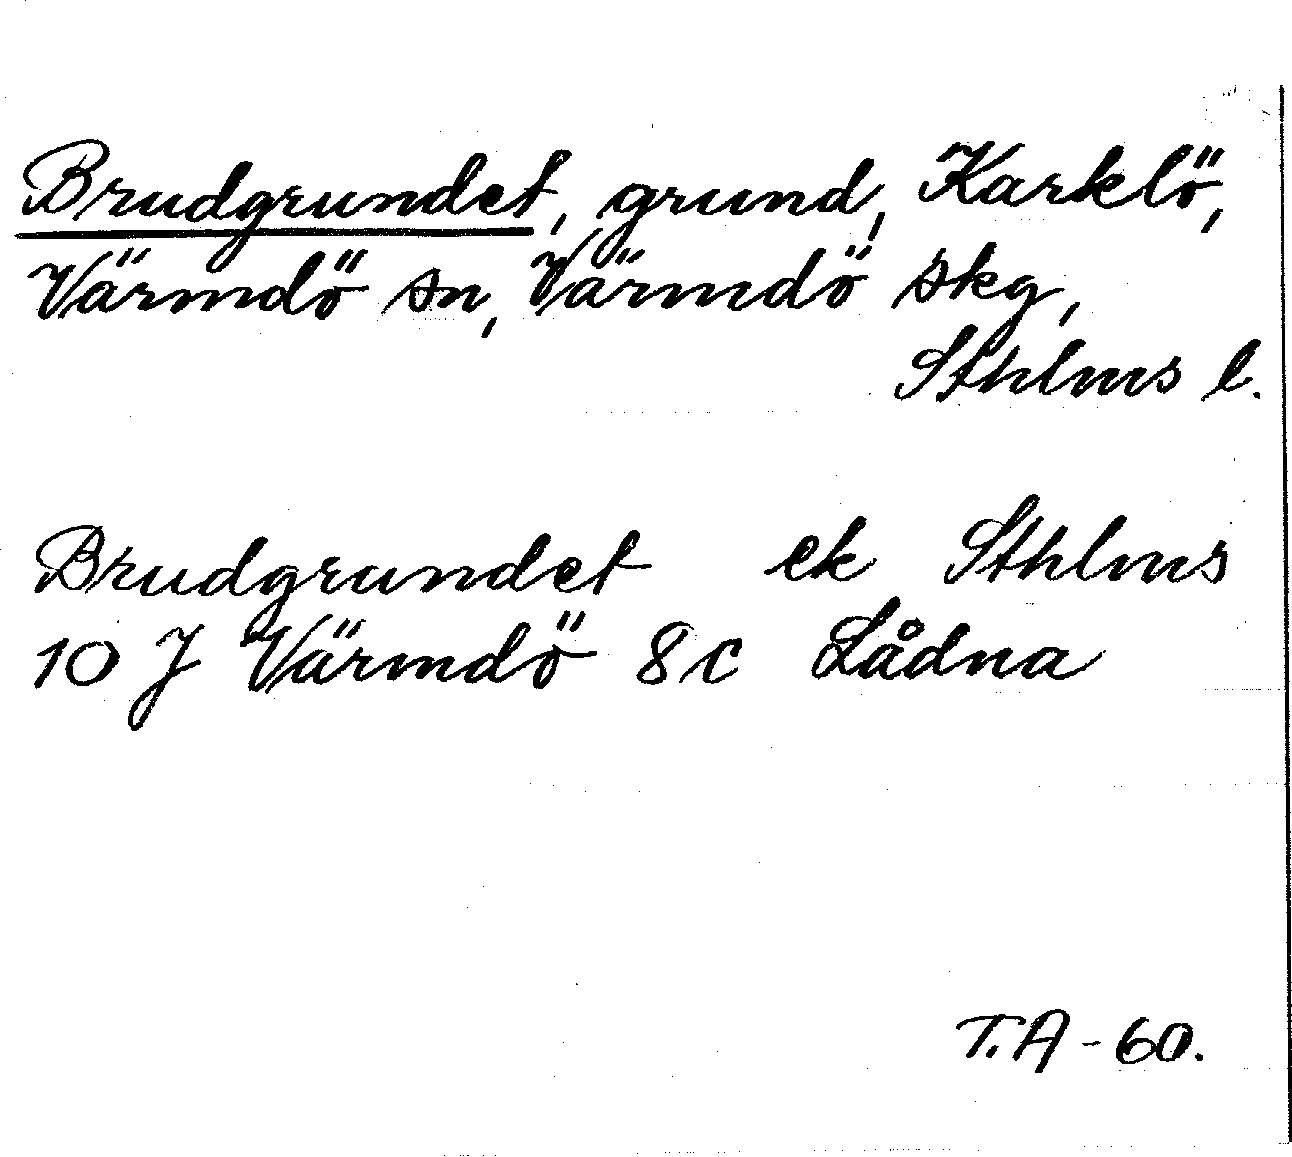 Brudgrundet, grund, Karklö,
Värmdö sn, Värmdö skg,
Sthlms l.
Brudgrundet ek Sthlms
10 J Värmdö 8c Lådna
T.A - 60.